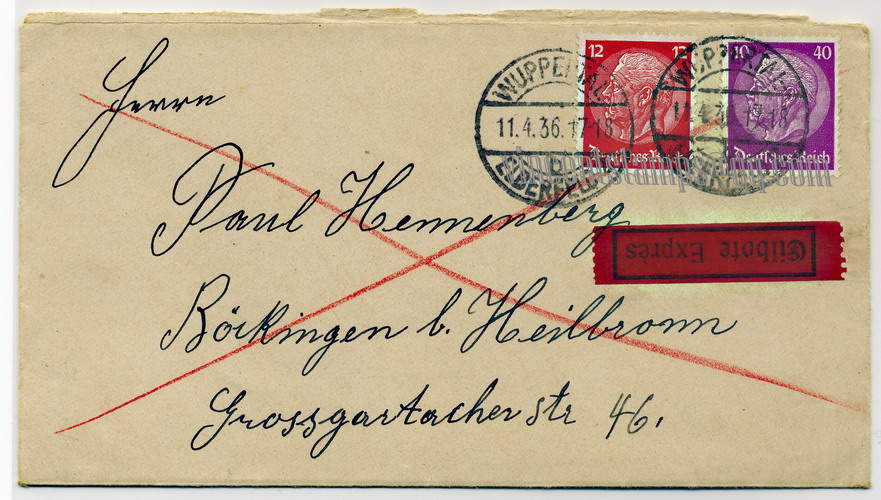 12 12
40 40
Deutsches Reich
Deutsches Reich
WUPPERTAL
11.4.36.17-18
b
ELBERFELD
WUPPERTAL
11.4.3 7-18
Herrn
Paul Hennenberg
Eilbote Exprès
Böckingen b. Heilbronn
Grossgartacherstr 46.